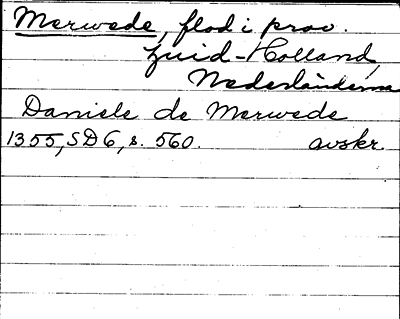 Merwede, flod i prov.
Zuid-Holland,
Nederländerna
Daniele de Merwede
1355, SD6, s. 560. avskr.